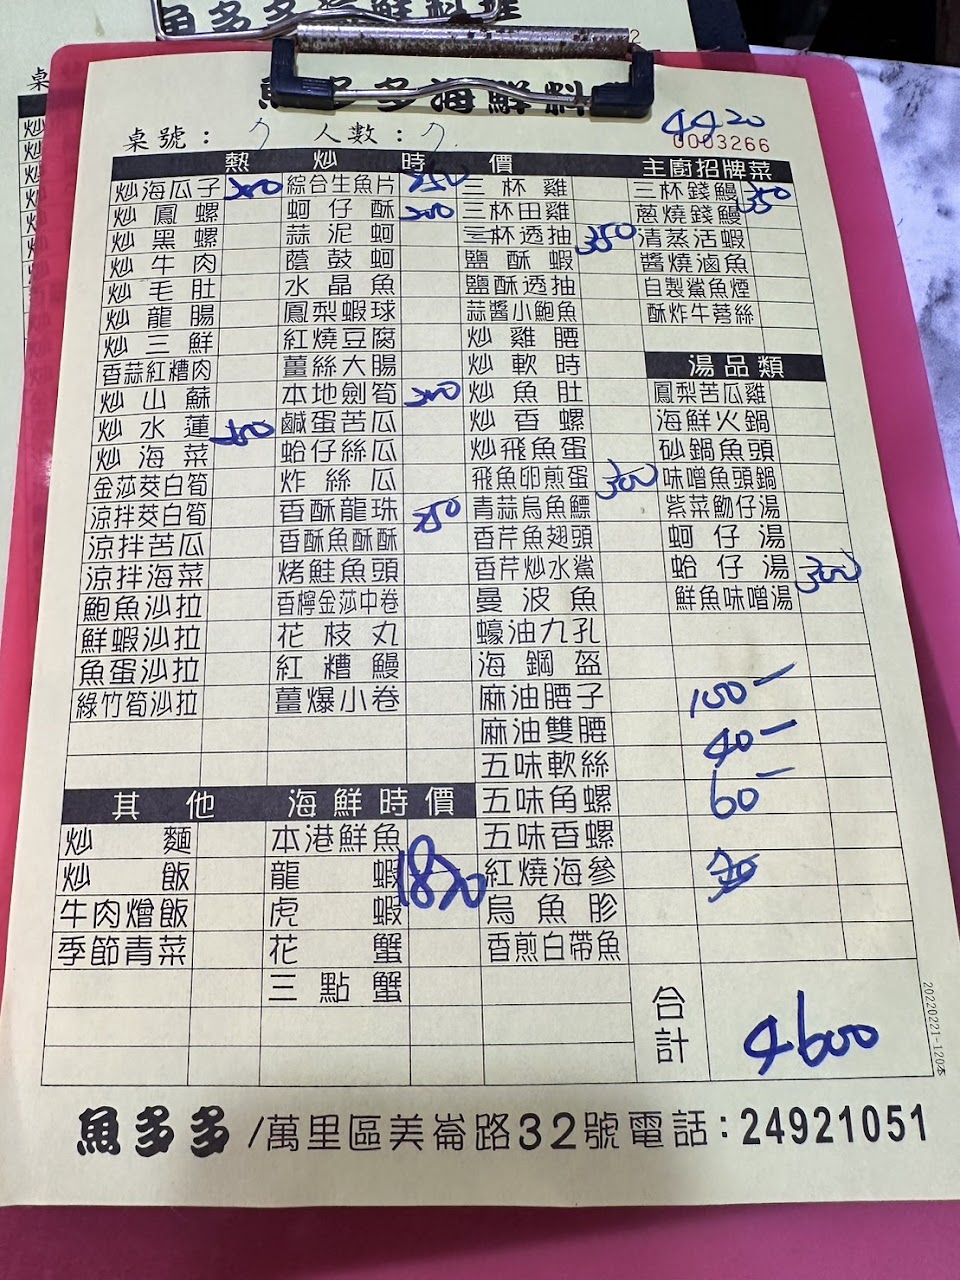 魚多多海鮮料
4420
0003266
桌號： 7 人數： 7
熱炒時價 主廚招牌菜
炒海瓜子 綜合生魚片 250 三杯雞 三杯錢鰻 350
炒鳳螺 蚵仔酥 200 三杯田雞 蔥燒錢鰻
炒黑螺 蒜泥蚵 三杯透抽 350 清蒸活蝦
炒牛肉 蔭鼓蚵 鹽酥蝦 醬燒滷魚
炒毛肚 水晶魚 鹽酥透抽 自製鯊魚煙
炒龍腸 鳳梨蝦球 蒜醬小鮑魚 酥炸牛蒡絲
炒三鮮 紅燒豆腐 炒雞腰
香蒜紅糟肉 薑絲大腸 炒軟時 湯品類
炒山蘇 本地劍筍 炒魚肚 鳳梨苦瓜雞
炒水蓮 鹹蛋苦瓜 炒香螺 海鮮火鍋
炒海菜 蛤仔絲瓜 炒飛魚蛋 砂鍋魚頭
金莎茭白筍 炸絲瓜 飛魚卵煎蛋 300 味噌魚頭鍋
涼拌茭白筍 香酥龍珠 250 青蒜烏魚鰾 紫菜魩仔湯
涼拌苦瓜 香酥魚酥酥 香芹魚翅頭 蚵仔湯
涼拌海菜 烤鮭魚頭 香芹炒水鯊 蛤仔湯 300
鮑魚沙拉 香檸金莎中卷 曼波魚 鮮魚味噌湯
鮮蝦沙拉 花枝丸 蠔油九孔
魚蛋沙拉 紅糟鰻 海鋼盔
綠竹筍沙拉 薑爆小卷 麻油腰子 100-
麻油雙腰 40-
五味軟絲
其他 海鮮時價 五味角螺 60-
炒麵 本港鮮魚 五味香螺
炒飯 龍蝦 1850 紅燒海參
牛肉燴飯 虎蝦 烏魚胗
季節青菜 花蟹 香煎白帶魚
三點蟹
合計 4600
20220221-120本
魚多多/萬里區美崙路32號電話：24921051